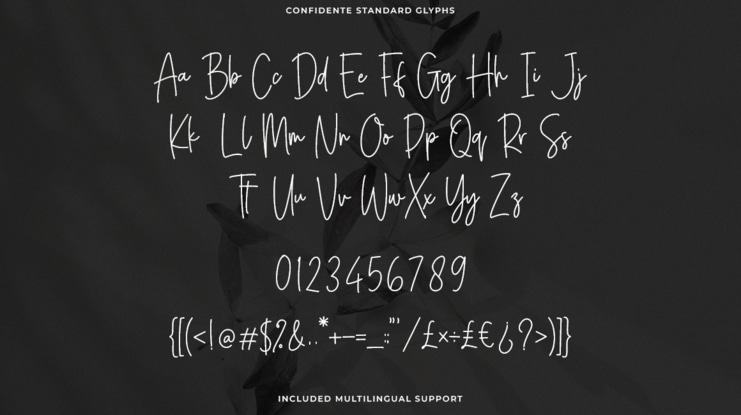 CONFIDENTE STANDARD GLYPHS
Aa Bb Cc Dd Ee Ff Gg Hh Ii Jj
Kk Ll Mm Nn Oo Pp Qq Rr Ss
Tt Uu Vv Ww Xx Yy Zz
0123456789
{[(<!@#$%&..*+–=_:;"'/£×÷££€¿?>)]}
INCLUDED MULTILINGUAL SUPPORT